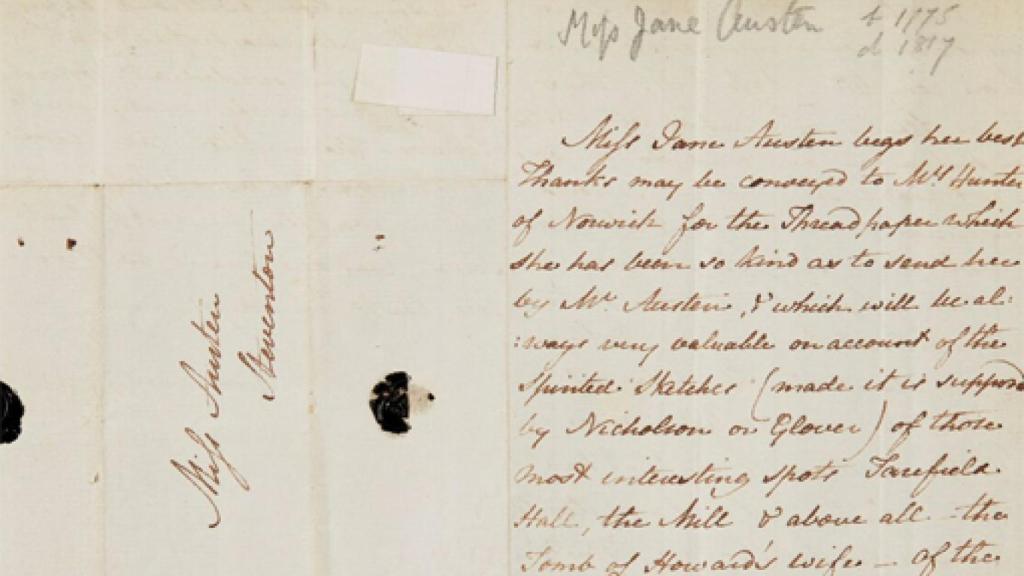 Miss Jane Austen b 1775
d 1817
Miss Austen
Steventon
Miss Jane Austen begs her best
Thanks may be conveyed to Mrs Hunter
of Norwich for the Threadpaper which
she has been so kind as to send her
by Mr Austen, & which will be al:
:ways very valuable on account of the
spirited Sketches (made it is supposed
by Nicholson or Glover) of those
most interesting spots Tarefield
Hall, the Mill & above all the
Tomb of Howard's wife – of the